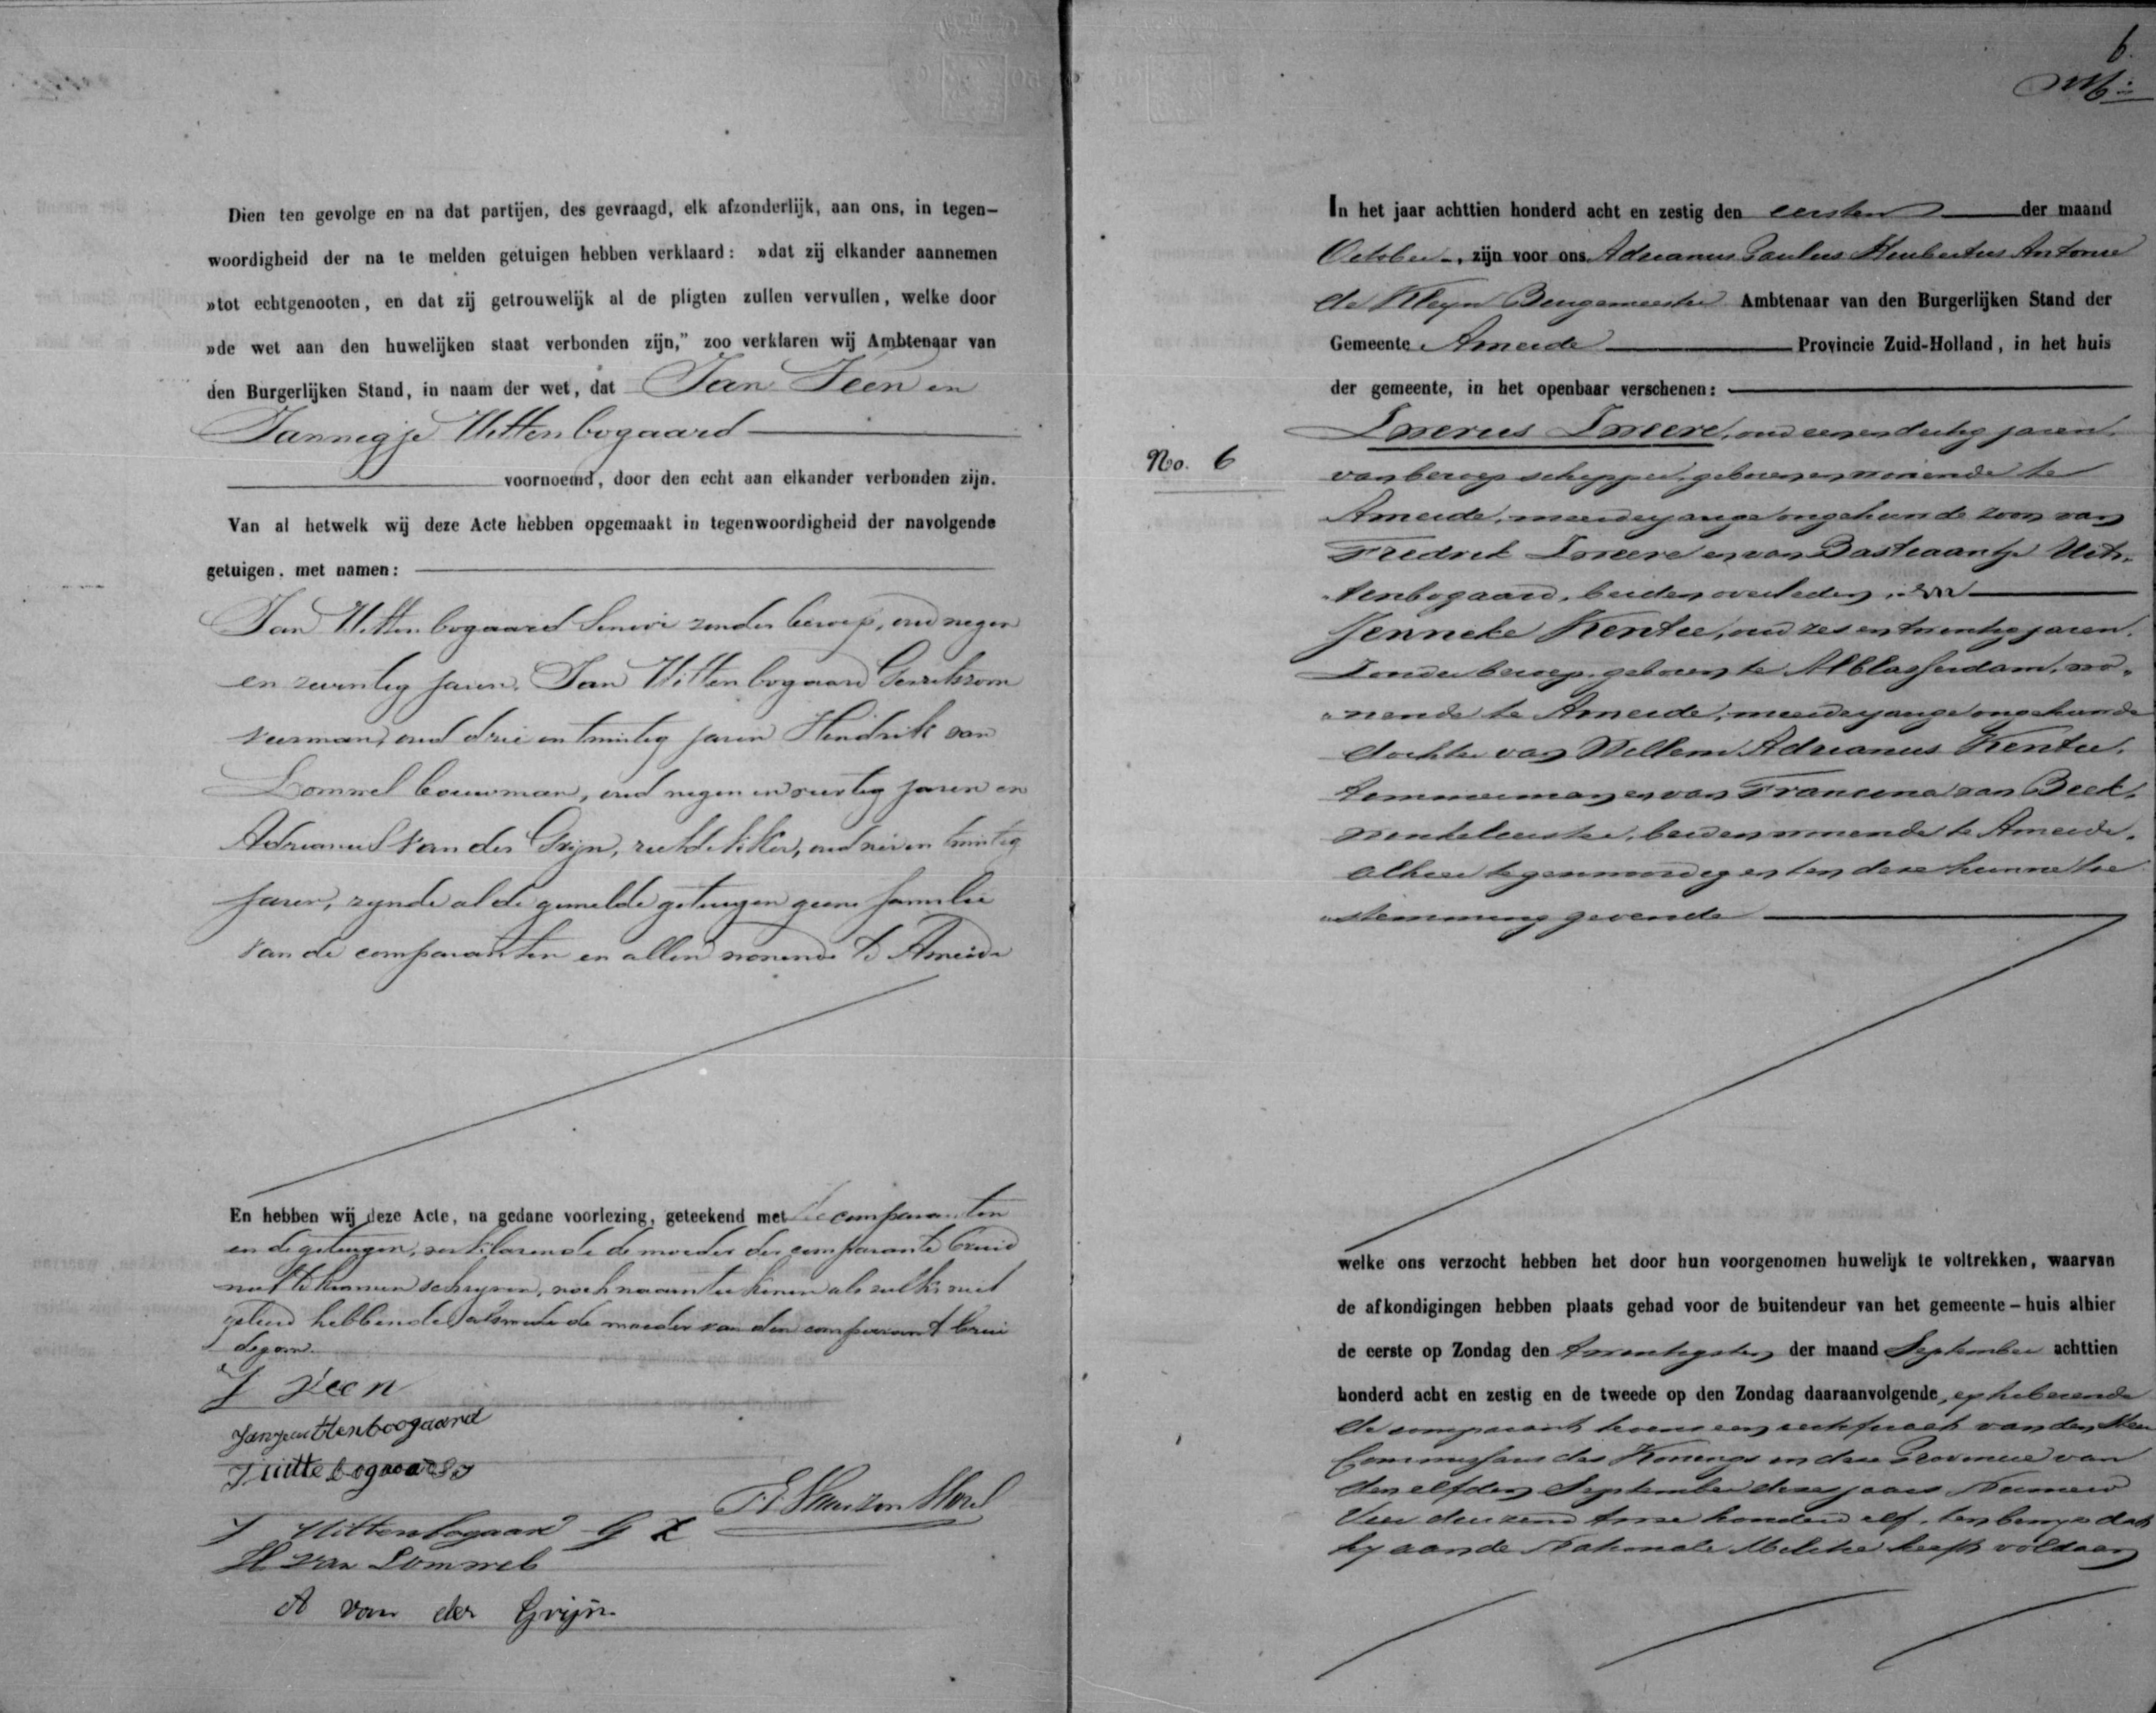 Dien ten gevolge en na dat partijen, des gevraagd, elk afzonderlijk, aan ons, in tegen-
woordigheid der na te melden getuigen hebben verklaard: »dat zij elkander aannemen
»tot echtgenooten, en dat zij getrouwelijk al de pligten zullen vervullen, welke door
»de wet aan den huwelijken staat verbonden zijn,” zoo verklaren wij Ambtenaar van
den Burgerlijken Stand, in naam der wet, dat Jan Veen en
Jannegje Uittenbogaard
voornoemd, door den echt aan elkander verbonden zijn.
Van al hetwelk wij deze Acte hebben opgemaakt in tegenwoordigheid der navolgende
getuigen, met namen:
Jan Uittenbogaard Senior zonder beroep, oud negen
en zeventig jaren, Jan Uittenbogaard Gerritszoon
veerman, oud drie en twintig jaren Hendrik van
Lommel bouwman, oud negen en veertig jaren en
Adrianus van der Grijn, rietdekker, oud en twintig
jaren, zynde al de gemelde getuigen geene familie
van de comparanten en allen wonende te Ameide
En hebben wij deze Acte, na gedane voorlezing, geteekend met de comparanten
en de getuigen, verklarende de moeder der comparante bruid
niet te kunnen schryven, noch naamteekenen als zulks niet
geleerd hebbende, alsmede de moeder van den comparant brui
degom.
J Veen
J uittebogaard Sr
J Uittenbogaard G Z
H van Lommel
A van der Grijn
6
In het jaar achttien honderd acht en zestig den eersten der maand
October, zijn voor ons Adrianus Paulus Hubertus Antonie
de Kleyn Burgemeester Ambtenaar van den Burgerlijken Stand der
Gemeente Ameide Provincie Zuid-Holland, in het huis
der gemeente, in het openbaar verschenen:
No. 6
oud een en dertig jaren,
van beroep schipper, geboren en wonende te
Ameide, meerderjarige ongehuwde zoon van
Fredrik en van Bastiaantje Uit-
tenbogaard, beiden overleden, en
Jenneke Kentie, oud zes en twintig jaren,
zonder beroep, geboren te Alblasserdam, wo-
nende te Ameide, meerderjarige ongehuwde
dochter van Willem Adrianus Kentie,
timmerman en van Francina van Beek,
winkelierster, beiden wonende te Ameide,
alhier tegenwoordig en ten deze hunne toe
stemming gevende
welke ons verzocht hebben het door hun voorgenomen huwelijk te voltrekken, waarvan
de afkondigingen hebben plaats gehad voor de buitendeur van het gemeente-huis alhier
de eerste op Zondag den twintigsten der maand September achttien
honderd acht en zestig en de tweede op den Zondag daaraanvolgende, exhiberende
de comparant tevens een certificaat van den Heer
Commissaris des Konings in deze Provincie van
den elfden September dezes jaars Nummer
Vier duizend twee honderd elf, ten bewyze dat
hy aan de Nationale Militie heeft voldaan